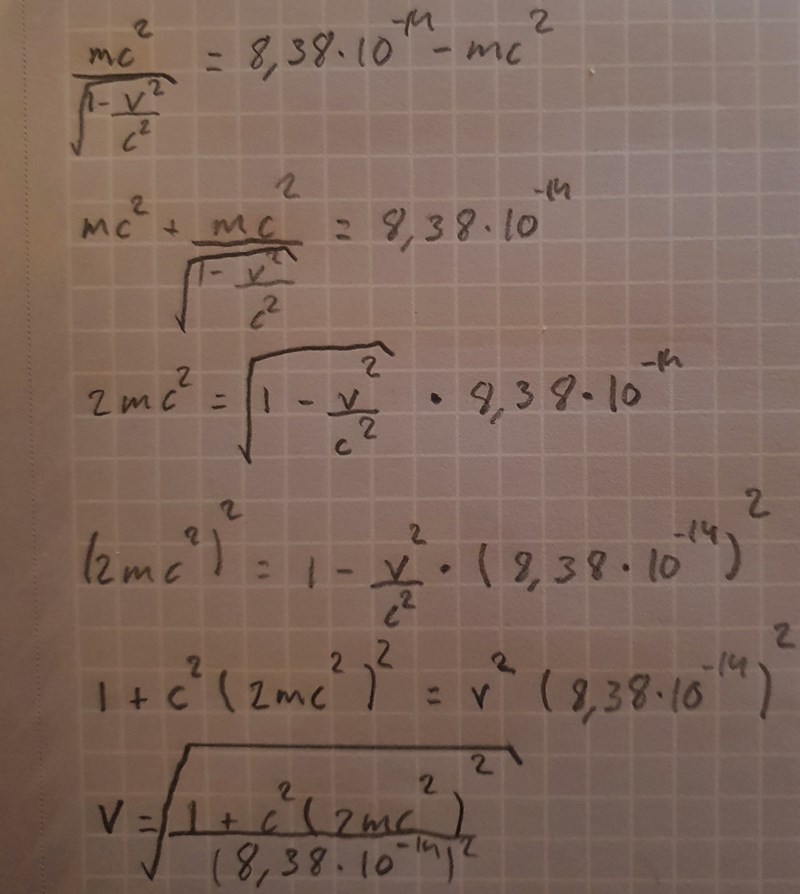 mc² / √(1 - v²/c²) = 8,38·10⁻¹⁴ - mc²
mc² + mc² / √(1 - v²/c²) = 8,38·10⁻¹⁴
2mc² = √(1 - v²/c²) · 8,38·10⁻¹⁴
(2mc²)² = 1 - v²/c² · (8,38·10⁻¹⁴)²
1 + c²(2mc²)² = v² (8,38·10⁻¹⁴)²
v = √((1 + c²(2mc²)²) / (8,38·10⁻¹⁴)²)